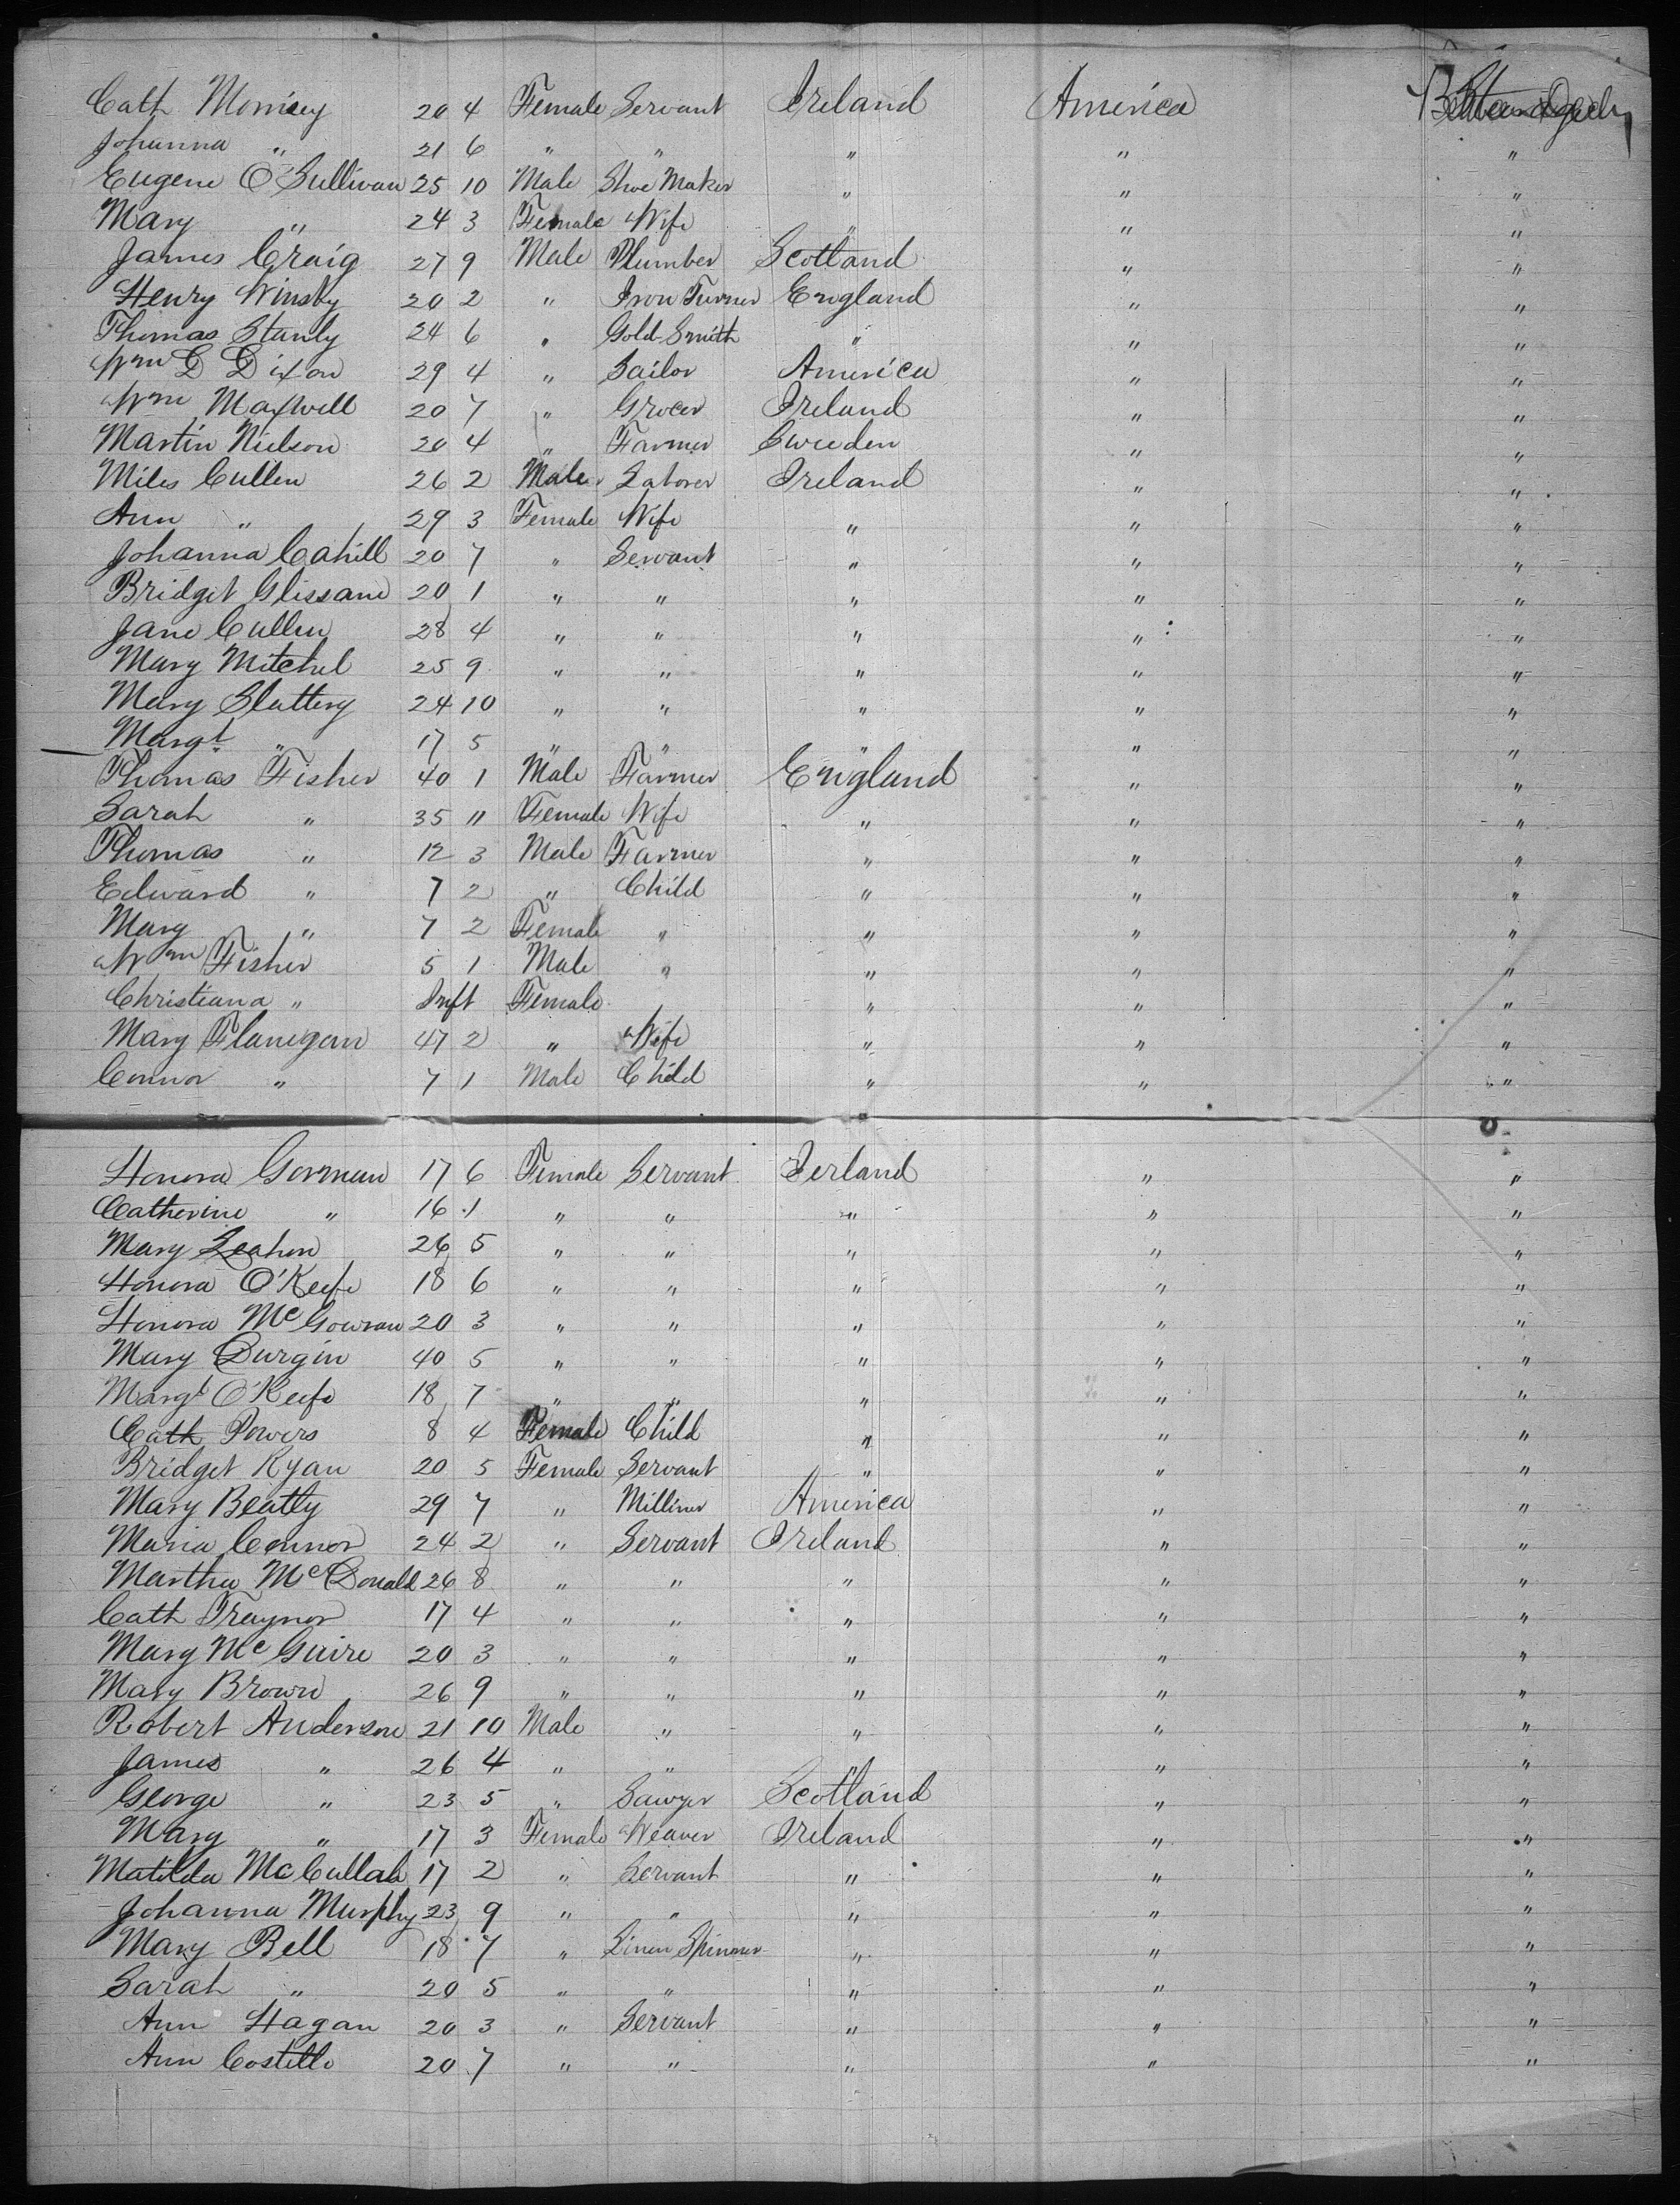 Cath Morrisey 20 4 Female Servant Ireland America
Johanna " 21 6 " " " " "
Eugene O'Sullivan 25 10 Male Shoe Maker " " "
Mary " 24 3 Female Wife " " "
James Craig 27 9 Male Plumber Scotland " "
Henry Winsby 20 2 " Iron Turner England " "
Thomas Stanly 24 6 " Gold Smith " " "
Wm G Dixon 29 4 " Sailor America " "
Wm Maxwell 20 7 " Grocer Ireland " "
Martin Nielson 20 4 " Farmer Sweeden " "
Miles Cullen 26 2 Male Laborer Ireland " "
Ann " 29 3 Female Wife " " "
Johanna Cahill 20 7 " Servant " " "
Bridget Glissane 20 1 " " " " "
Jane Cullen 28 4 " " " " "
Mary Mitchel 25 9 " " " " "
Mary Slattery 24 10 " " " " "
Margt " 17 5 " " " " "
Thomas Fisher 40 1 Male Farmer England " "
Sarah " 35 11 Female Wife " " "
Thomas " 12 3 Male Farmer " " "
Edward " 7 2 " Child " " "
Mary " 7 2 Female " " " "
Wm Fisher 5 1 Male " " " "
Christiana " Inft Female " " "
Mary Flanegan 47 2 " Wife " " "
Connor " 7 1 Male Child " " "
Honora Gorman 17 6 Female Servant Ierland " "
Catherine " 16 1 " " " " "
Mary Leahon 26 5 " " " " "
Honora O'Keefe 18 6 " " " " "
Honora McGowran 20 3 " " " " "
Mary Durgin 40 5 " " " " "
Margt O'Keefe 18 7 " " " " "
Cath Powers 8 4 Female Child " " "
Bridget Ryan 20 5 Female Servant " " "
Mary Beatty 29 7 " Milliner America " "
Maria Connor 24 2 " Servant Ireland " "
Martha McDonald 26 8 " " " " "
Cath Traynor 17 4 " " " " "
Mary McGuire 20 3 " " " " "
Mary Brown 26 9 " " " " "
Robert Anderson 21 10 Male " " " "
James " 26 4 " " " " "
George " 23 5 " Sawyer Scotland " "
Mary " 17 3 Female Weaver Ireland " "
Matilda McCullah 17 2 " Servant " " "
Johanna Murphy 23 9 " " " " "
Mary Bell 18 7 " Linen Spinner " " "
Sarah " 20 5 " " " " "
Ann Hagan 20 3 " Servant " " "
Ann Costello 20 7 " " " " "